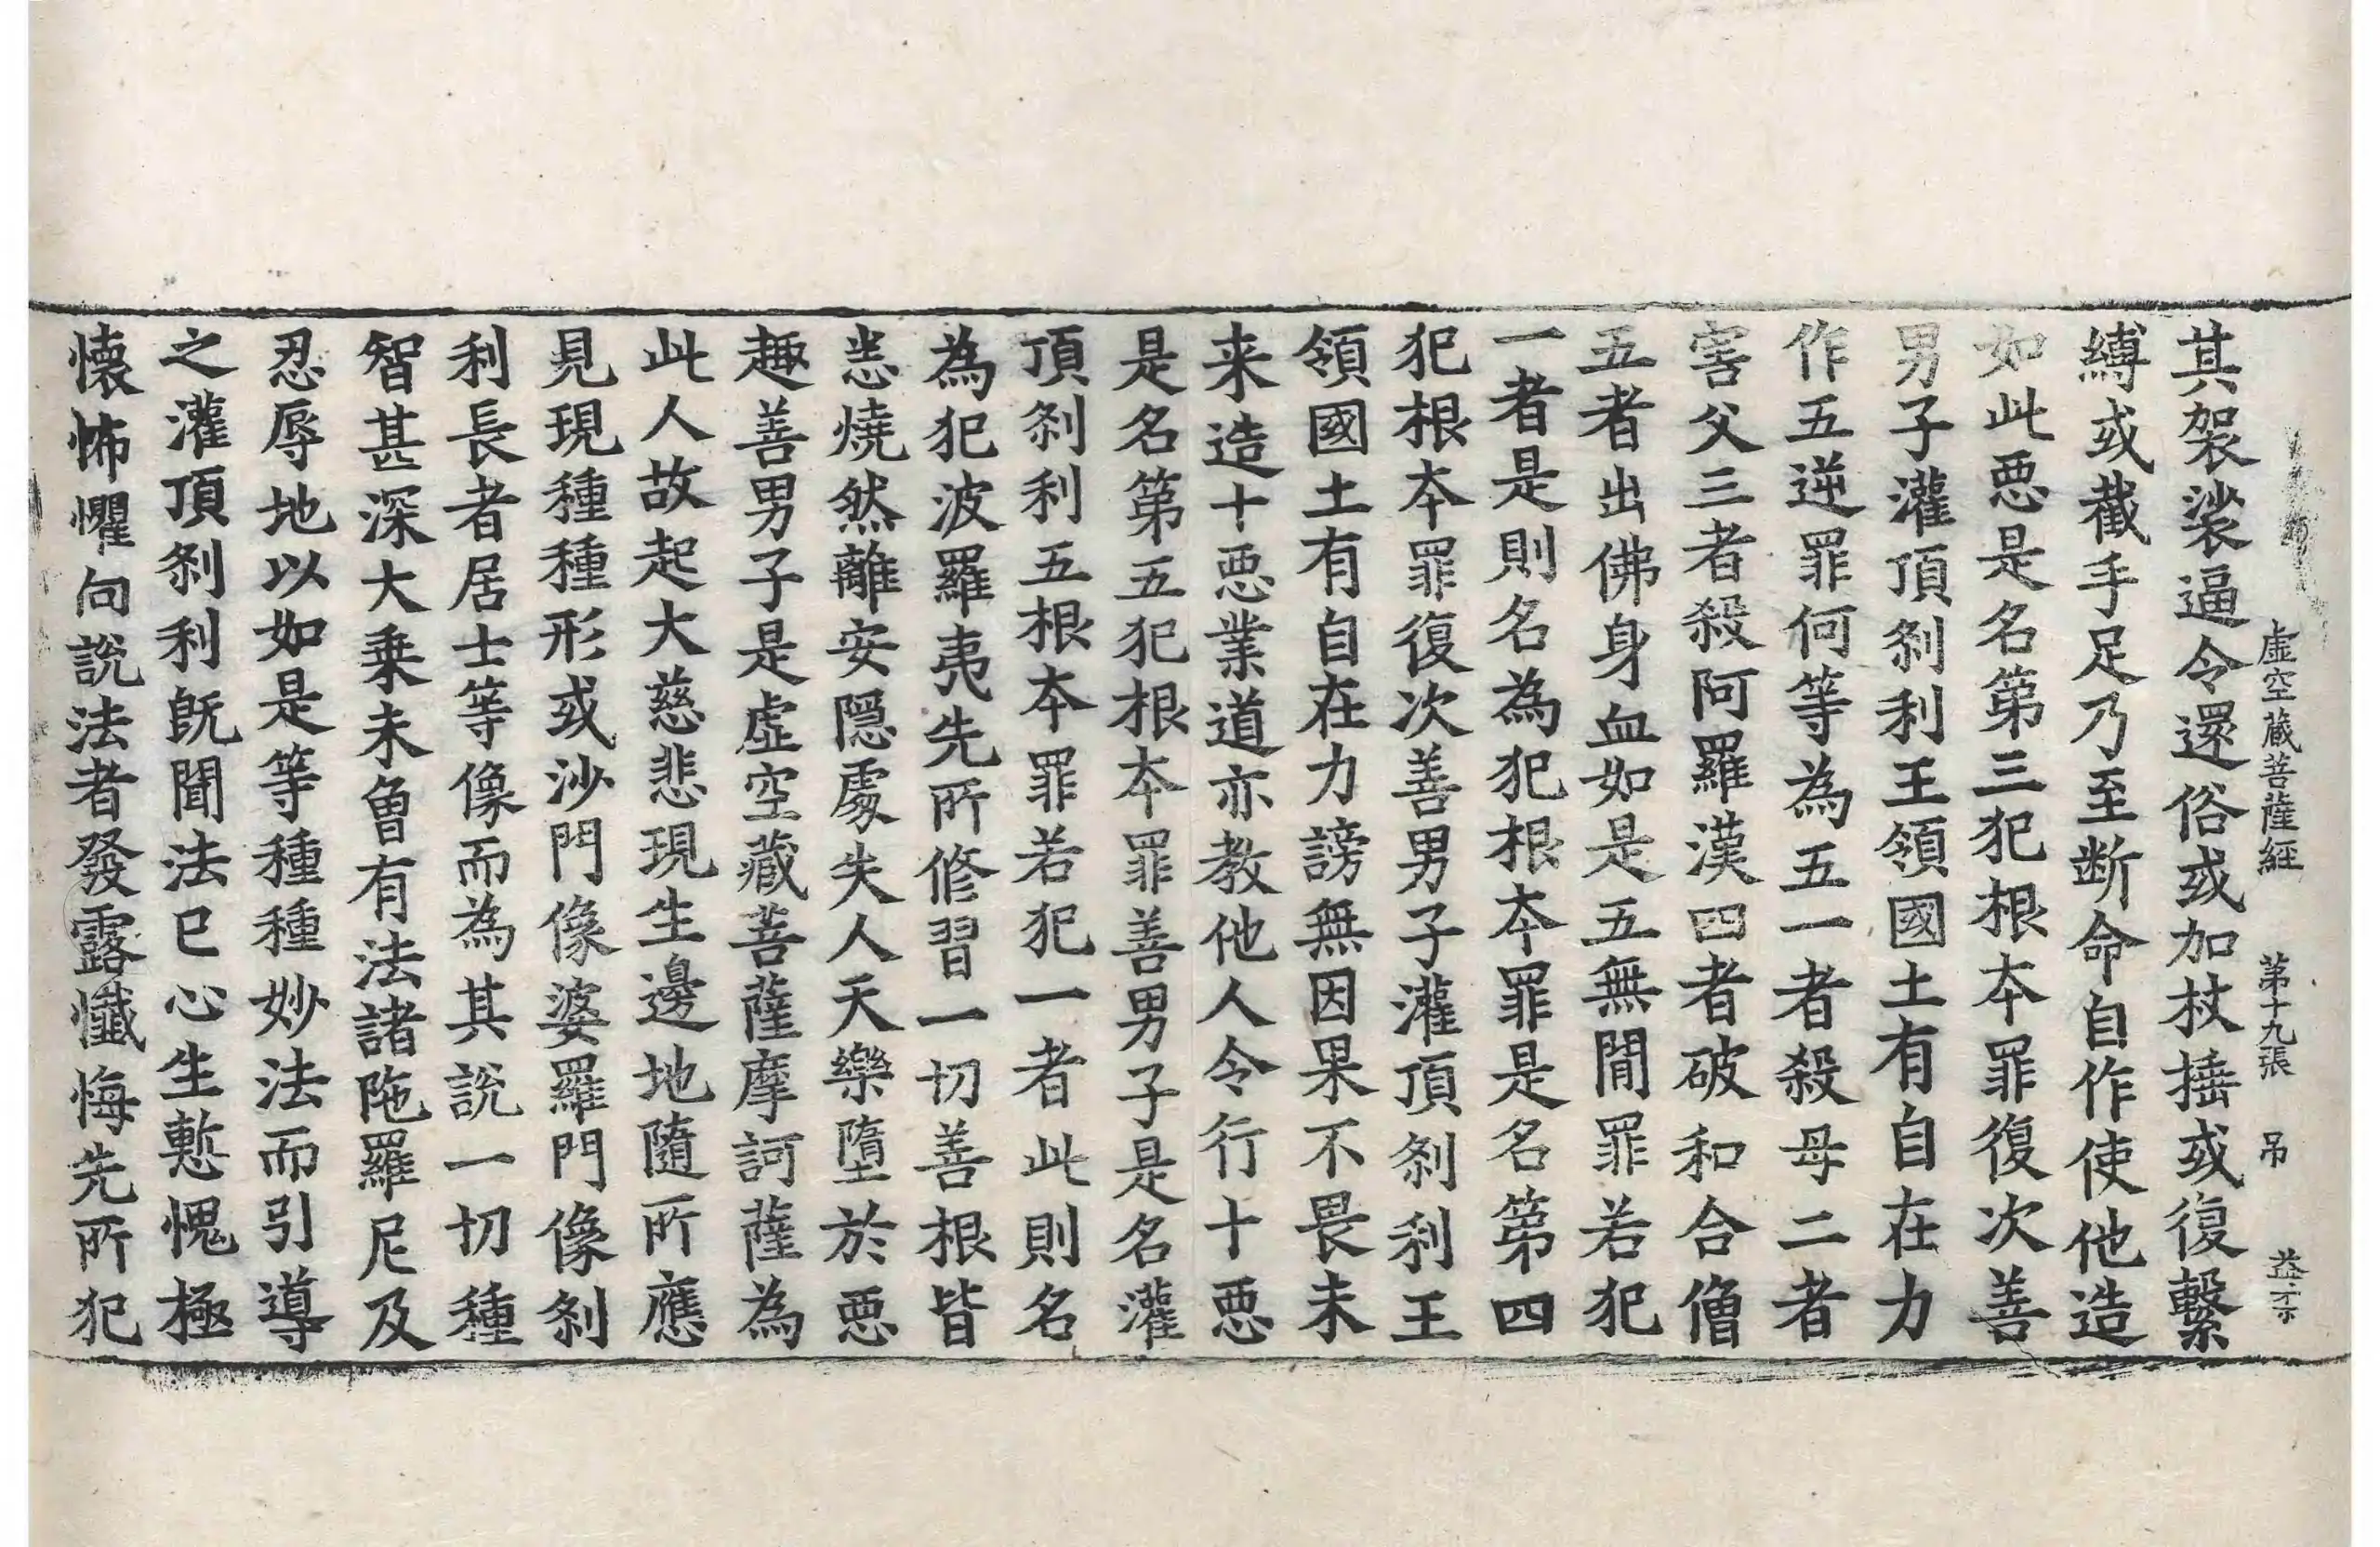 虛空藏菩薩經 第十九張 吊
其袈裟逼令還俗或加杖捶或復繫
縛或截手足乃至断命自作使他造
如此惡是名第三犯根本罪復次善
男子灌頂剎利王領國土有自在力
作五逆罪何等為五一者殺母二者
害父三者殺阿羅漢四者破和合僧
五者出佛身血如是五無閒罪若犯
一者是則名為犯根本罪是名第四
犯根本罪復次善男子灌頂剎利王
領國土有自在力謗無因果不畏未
来造十惡業道亦教他人令行十惡
是名第五犯根本罪善男子是名灌
頂剎利五根本罪若犯一者此則名
為犯波羅夷先所修習一切善根皆
悉燒然離安隱處失人天樂墮於惡
趣善男子是虛空藏菩薩摩訶薩為
此人故起大慈悲現生邊地隨所應
見現種種形或沙門像婆羅門像剎
利長者居士等像而為其說一切種
智甚深大乗未曾有法諸陁羅尼及
忍辱地以如是等種種妙法而引導
之灌頂剎利既聞法已心生慙愧極
懐怖懼向說法者發露懺悔先所犯